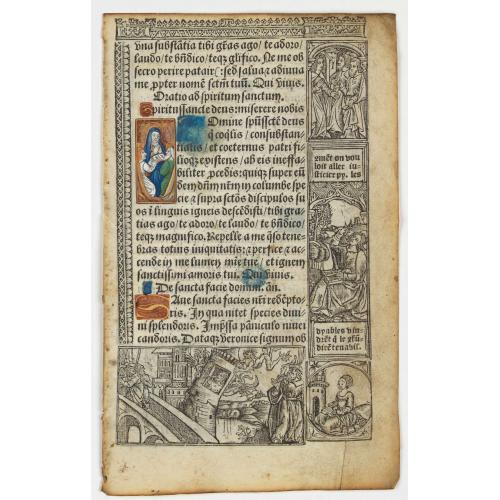 vna substãtia tibi grãs ago/ te adoro/
laudo/ te bñdico/ teqz glifico. Ne me ob
secro perire patair: sed salua & adiuua
me ꝓpter nomẽ sctm̃ tuũ. Qui viuis.
Oratio ad spiritum sanctum.
Spiritus sancte deus: miserere nobis
Domine spũsscte deus
q̃ coqlis/ consubstan
tialis/ et coeternus patri fi
lioqz existens/ ab eis ineffa
biliter ꝓcedis: quiqz super eũ
dem dñm nrm̃ in columbe spe
cie & supra sctõs discipulos su
os ĩ linguis igneis descẽdisti/ tibi gra
tias ago/ te adoro/ te laudo/ te bñdico/
teqz magnifico. Repelle a me qso tene
bras totius iniquitatis: & perfice &
accende in me lumen mie tue/ et ignem
sanctissimi amoris tui. Qui viuis.
De sancta facie domini. añ.
Aue sancta facies nr̃i redẽpto
ris. In qua nitet species diui
ni splendoris. Impssa paniculo niuei
candoris. Dataqz veronice signum ob
on vou
loit aller iu
sticier les
dyables vin
drẽt